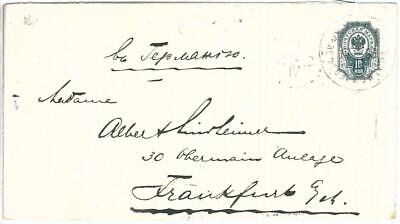 въ Германію.
Madame
Albert Sindheimer
30 Obermain Anlage
Frankfurt